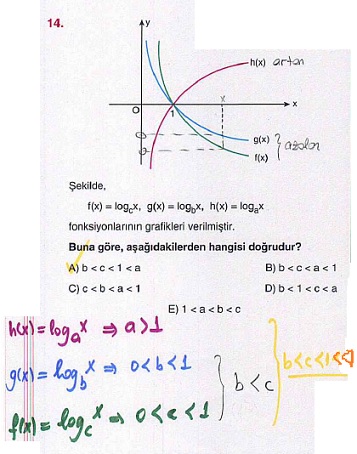 14.
y
h(x) artan
x
O
1
x
g(x)
f(x)
azalan
Şekilde,
f(x) = log_c x, g(x) = log_b x, h(x) = log_a x
fonksiyonlarının grafikleri verilmiştir.
Buna göre, aşağıdakilerden hangisi doğrudur?
A) b < c < 1 < a B) b < c < a < 1
C) c < b < a < 1 D) b < 1 < c < a
E) 1 < a < b < c
h(x) = log_a x ⇒ a > 1
g(x) = log_b x ⇒ 0 < b < 1
f(x) = log_c x ⇒ 0 < c < 1
b < c
b < c < 1 < a